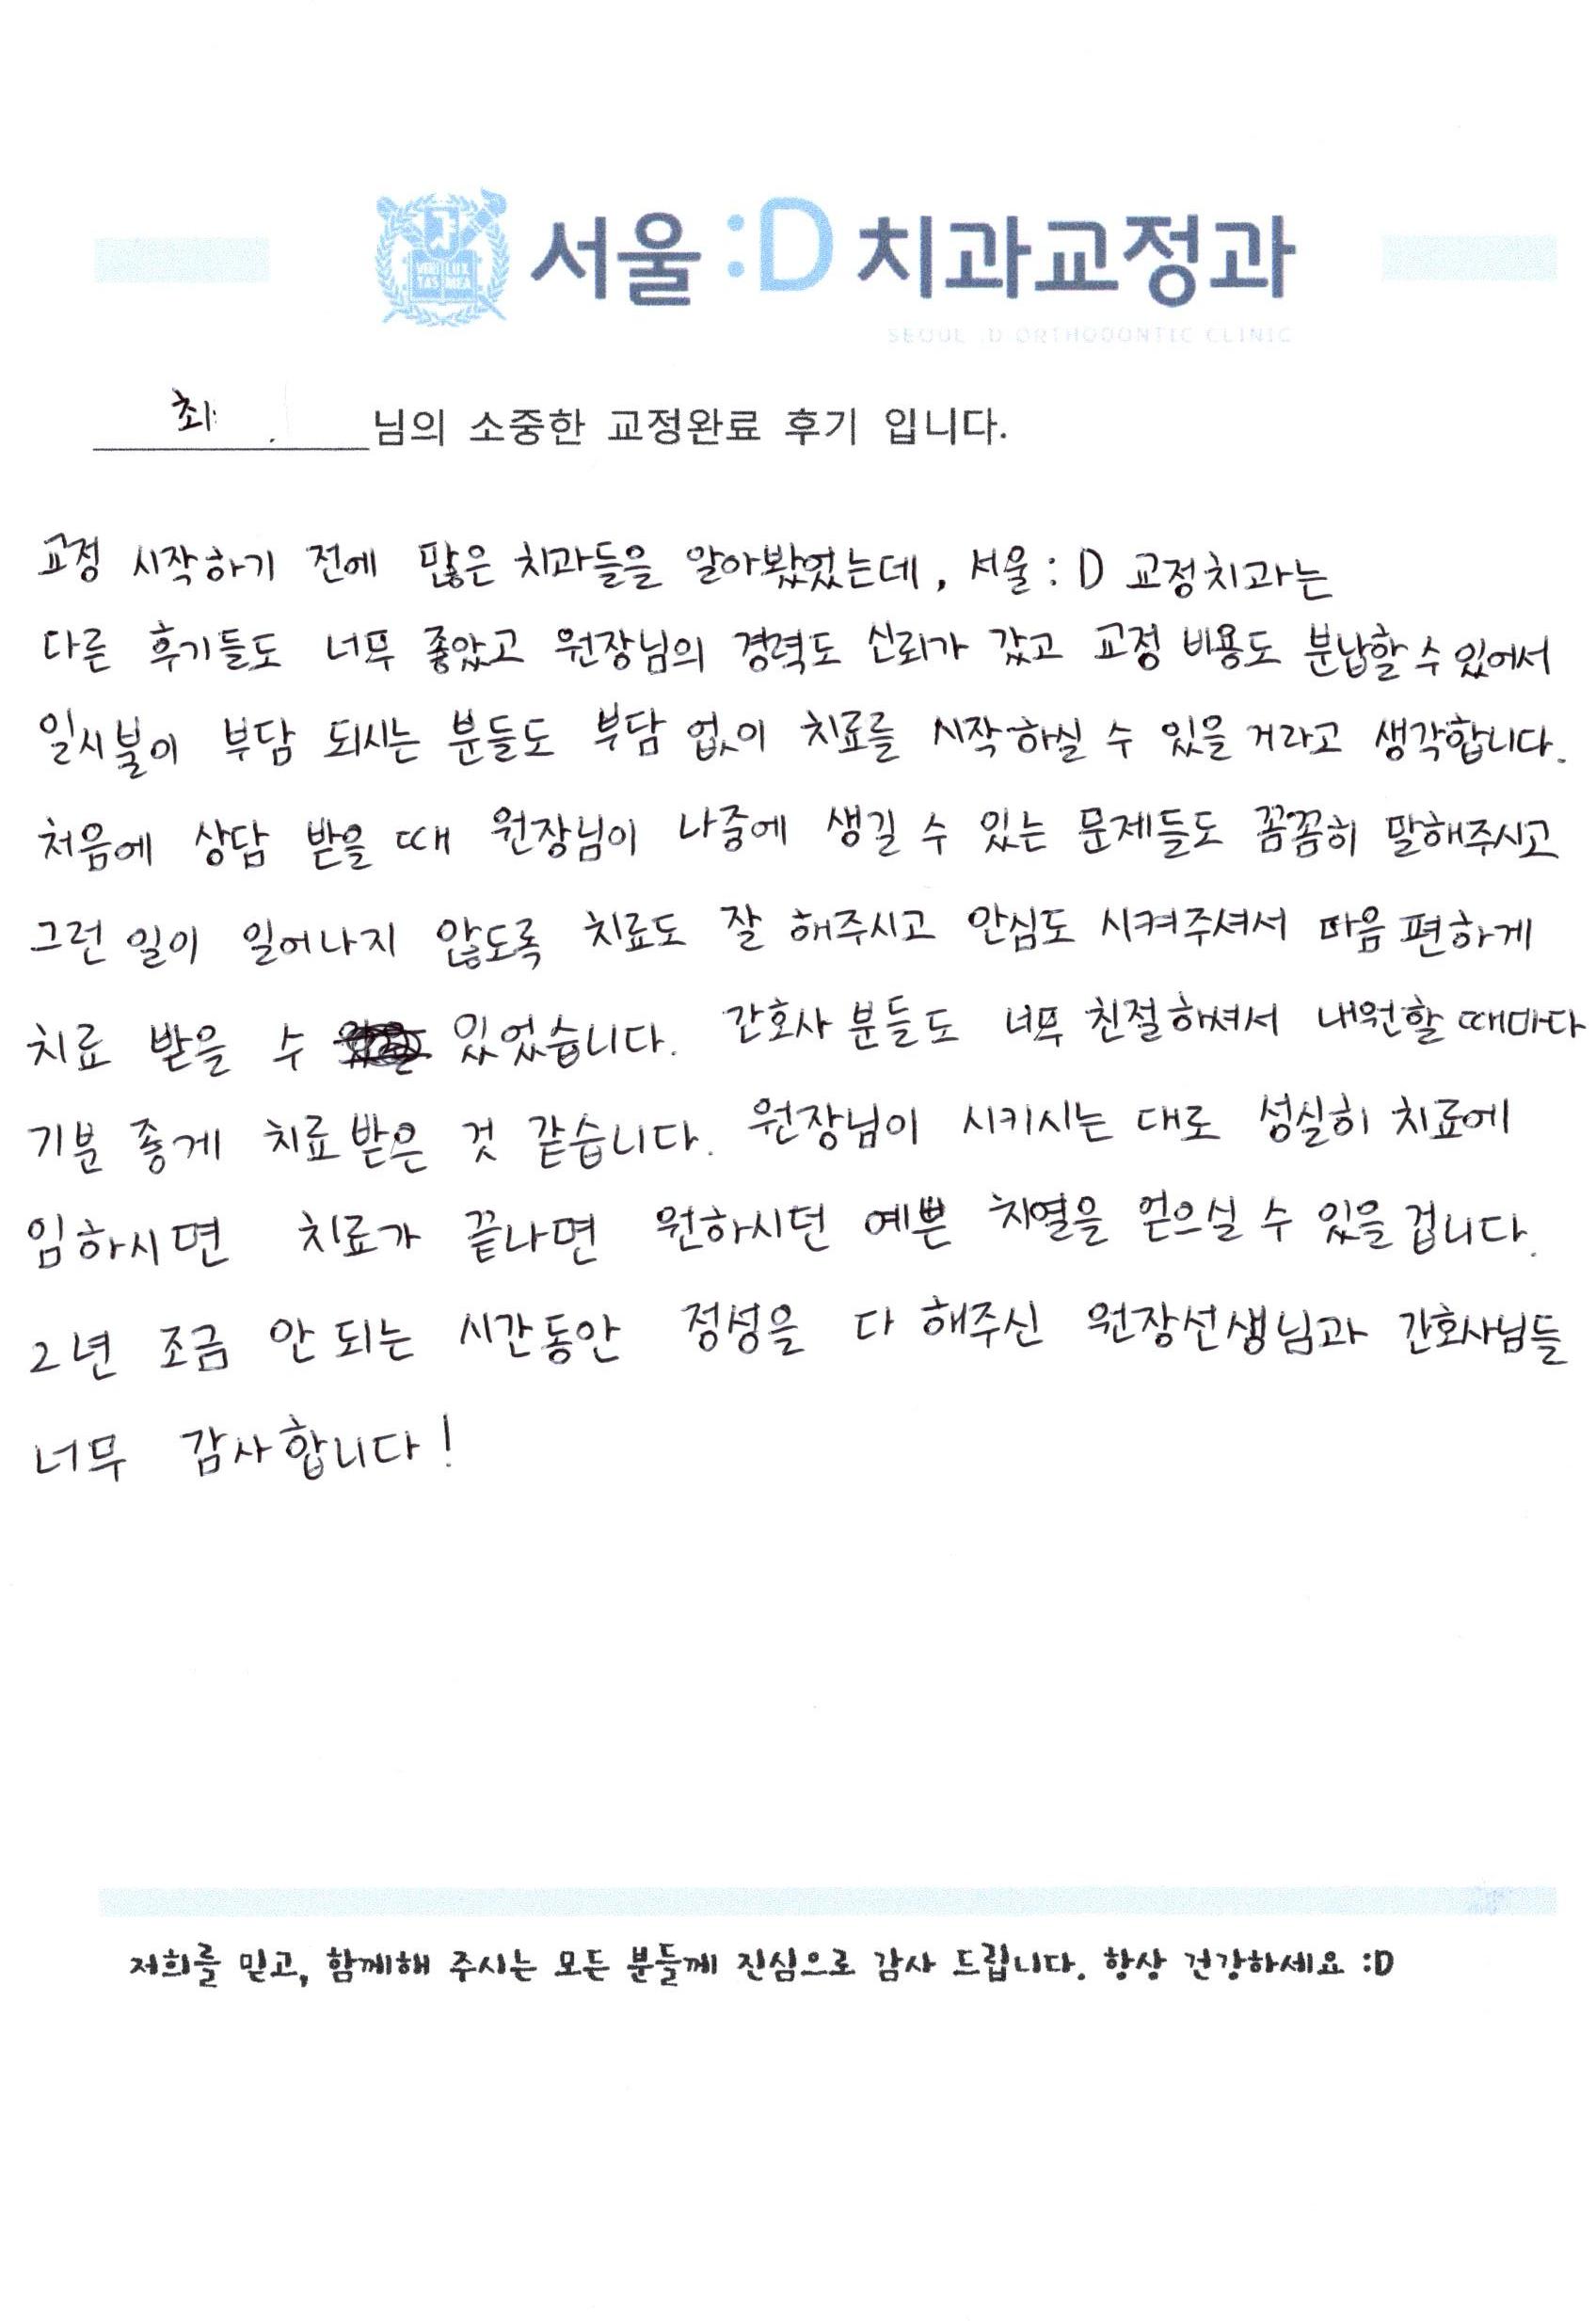 VERI LUX
TAS MEA
서울 :D 치과교정과
SEOUL :D ORTHODONTIC CLINIC
최 님의 소중한 교정완료 후기 입니다.
교정 시작하기 전에 많은 치과들을 알아봤었는데, 서울 : D 교정치과는
다른 후기들도 너무 좋았고 원장님의 경력도 신뢰가 갔고 교정 비용도 분납할 수 있어서
일시불이 부담 되시는 분들도 부담 없이 치료를 시작하실 수 있을 거라고 생각합니다.
처음에 상담 받을 때 원장님이 나중에 생길 수 있는 문제들도 꼼꼼히 말해주시고
그런 일이 일어나지 않도록 치료도 잘 해주시고 안심도 시켜주셔서 마음 편하게
치료 받을 수 있었습니다. 간호사 분들도 너무 친절하셔서 내원할 때마다
기분 좋게 치료 받은 것 같습니다. 원장님이 시키시는 대로 성실히 치료에
임하시면 치료가 끝나면 원하시던 예쁜 치열을 얻으실 수 있을 겁니다.
2년 조금 안 되는 시간동안 정성을 다 해주신 원장선생님과 간호사님들
너무 감사합니다!
저희를 믿고, 함께해 주시는 모든 분들께 진심으로 감사 드립니다. 항상 건강하세요 :D